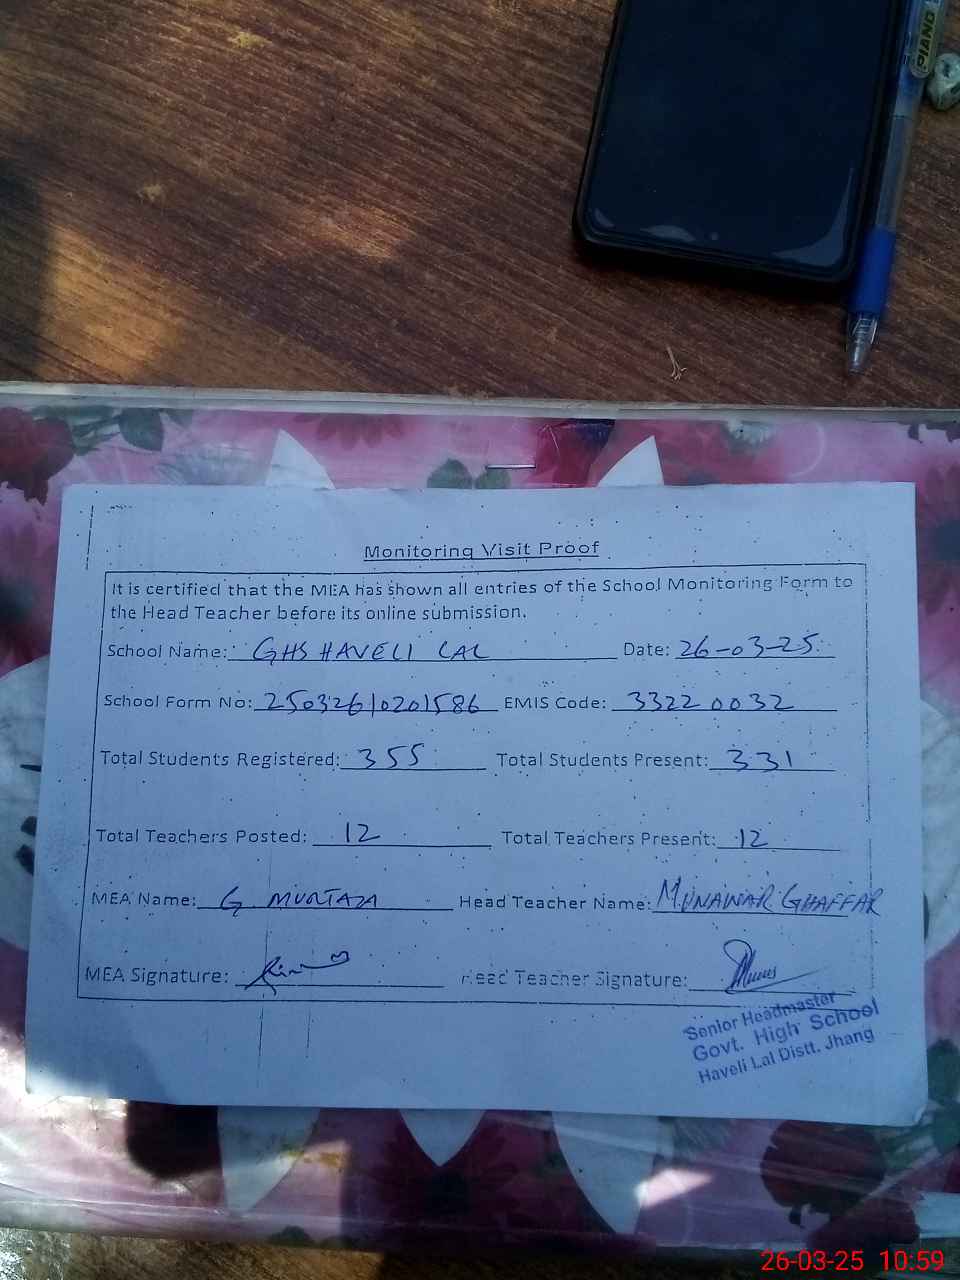 PIANO
Monitoring Visit Proof
It is certified that the MEA has shown all entries of the School Monitoring Form to
the Head Teacher before its online submission.
School Name: GHS HAVELI LAL Date: 26-03-25
School Form No: 25032610201586 EMIS Code: 33220032
Total Students Registered: 355 Total Students Present: 331
Total Teachers Posted: 12 Total Teachers Present: 12
MEA Name: G MURTAZA Head Teacher Name: MUNAWAR GHAFFAR
MEA Signature: Head Teacher Signature:
Senior Headmaster
Govt. High School
Haveli Lal Distt. Jhang
26-03-25 10:59